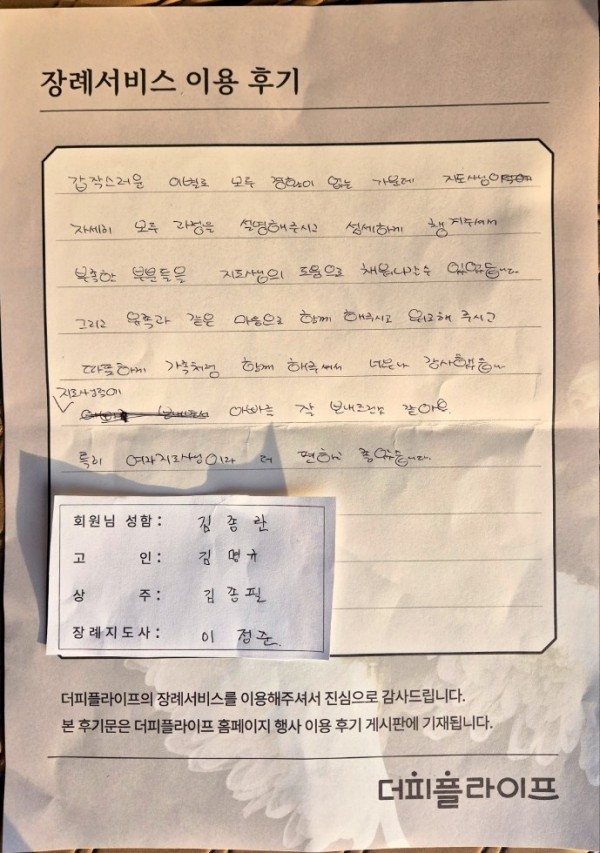 장례서비스 이용 후기
갑작스러운 이별로 모두 경황이 없는 가운데 지도사님이
자세히 모두 과정을 설명해주시고 섬세하게 챙겨주셔서
부족한 부분들을 지도사님의 도움으로 채워나갈수 있었습니다.
그리고 유족과 같은 마음으로 함께 해주시고 위로해 주시고
따뜻하게 가족처럼 함께 해주셔서 너무나 감사했습니다
지도사님덕에
아빠를 잘 보내드린거 같아요.
특히 여자지도사님이라 더 편하고 좋았습니다.
회원님 성함 : 김종란
고 인 : 김명규
상 주 : 김종필
장례지도사 : 이정준
더피플라이프의 장례서비스를 이용해주셔서 진심으로 감사드립니다.
본 후기문은 더피플라이프 홈페이지 행사 이용 후기 게시판에 기재됩니다.
더피플라이프